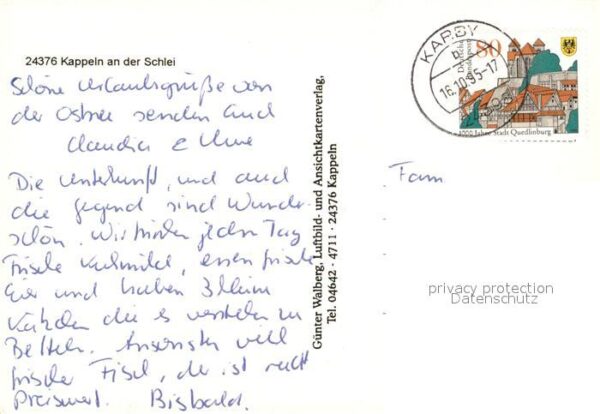 24376 Kappeln an der Schlei
Schöne Urlaubsgrüße von
der Ostsee senden Euch
Claudia & Uwe
Die Unterkunft, und auch
die Gegend sind Wunder-
schön. Wir trinken jeden Tag
frische Kuhmilch, essen frische
Eier und haben 3 kleine
Kätzchen die es verstehen zu
Betteln. Ansonsten viel
frischer Fisch, der ist recht
Preiswert. Bisbald.
Günter Walberg, Luftbild- und Ansichtkartenverlag,
Tel. 04642 - 4711 · 24376 Kappeln
KARBY
16.10.95-17
80
Deutsche
Bundespost
1000 Jahre Stadt Quedlinburg
Fam
privacy protection
Datenschutz